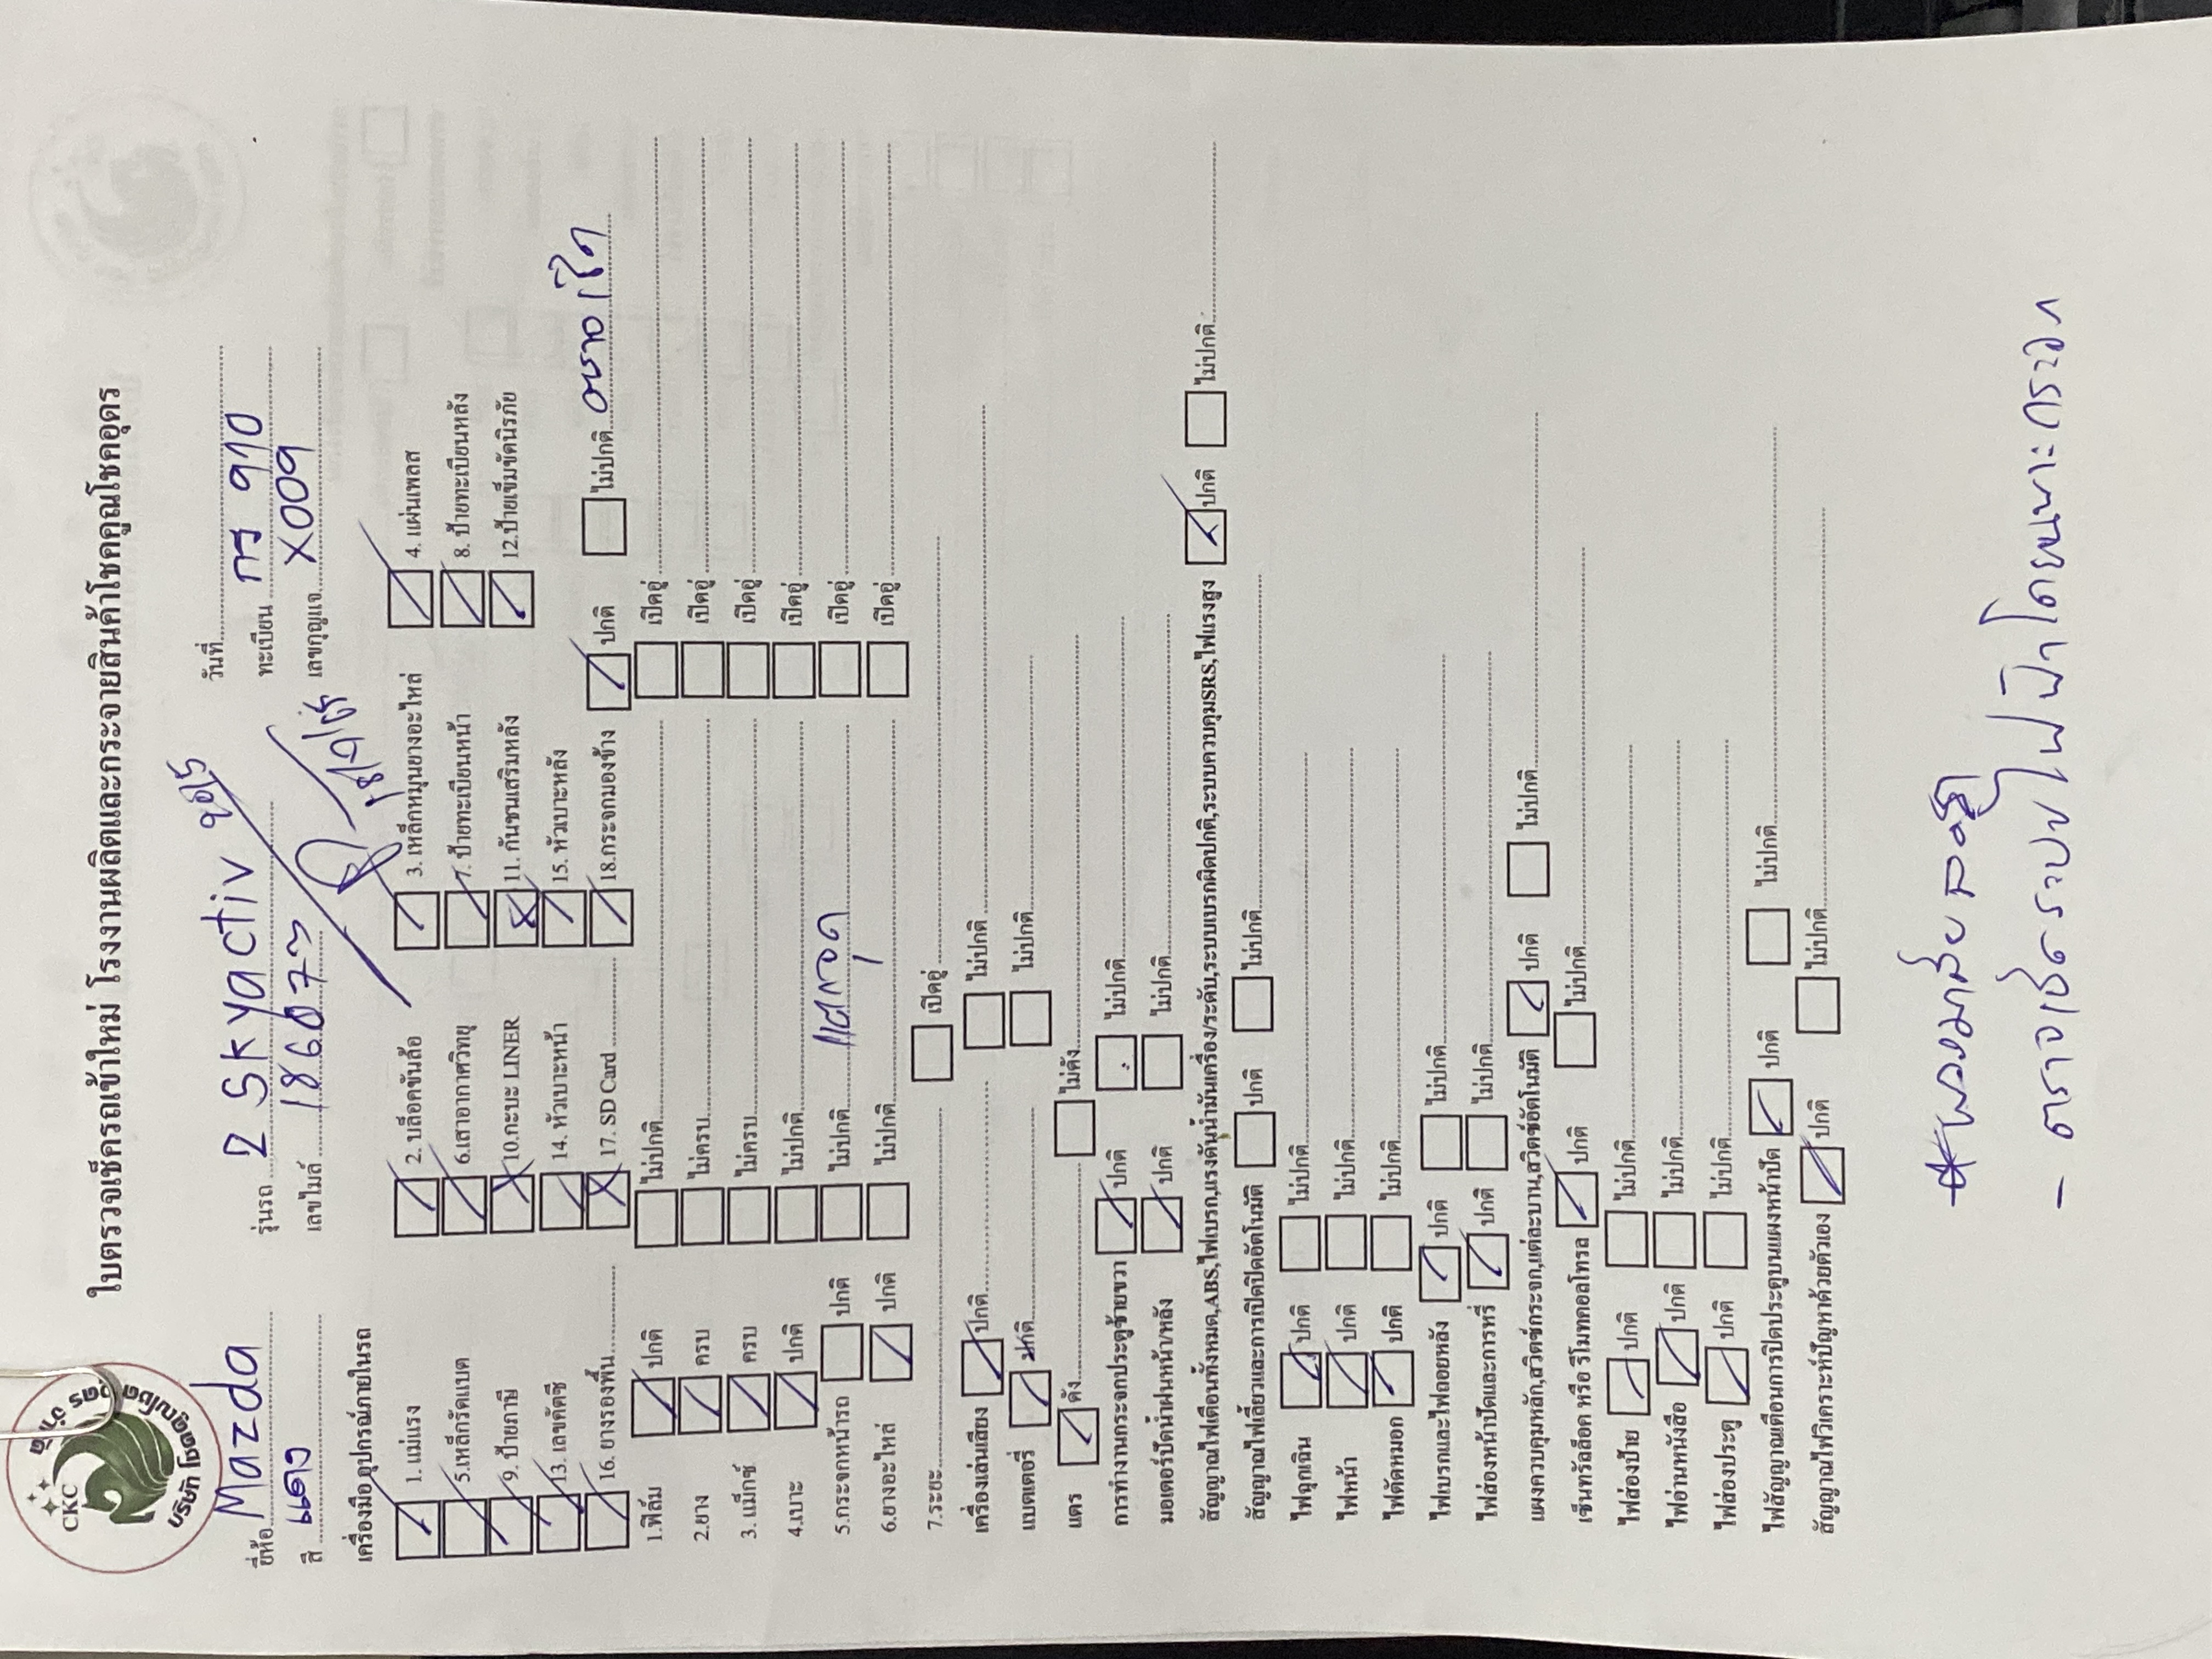 CKC
บริษัท โชคคูณโชค อุดร จำกัด
ใบตรวจเช็ครถเข้าใหม่ โรงงานผลิตและกระจายสินค้าโชคคูณโชคอุดร
วันที่
ยี่ห้อ Mazda รุ่นรถ 2 Skyactiv ทะเบียน กว 910
สี แดง เลขไมล์ 186073 เลขกุญแจ X009
เครื่องมืออุปกรณ์ภายในรถ
1. แม่แรง 2. บล็อคขันล้อ 3. เหล็กหมุนยางอะไหล่ 4. แผ่นเพลส
5.เหล็กรัดแบต 6.เสาอากาศวิทยุ 7. ป้ายทะเบียนหน้า 8. ป้ายทะเบียนหลัง
9. ป้ายภาษี 10.กะบะ LINER 11. กันชนเสริมหลัง 12.ป้ายเข็มขัดนิรภัย
13. เลขคัตซี 14. หัวเบาะหน้า 15. หัวเบาะหลัง
16. ยางรองพื้น 17. SD Card 18.กระจกมองข้าง ปกติ ไม่ปกติ
1.ฟิล์ม ปกติ ไม่ปกติ เปิดอู่
2.ยาง ครบ ไม่ครบ เปิดอู่
3. แม็กซ์ ครบ ไม่ครบ เปิดอู่
4.เบาะ ปกติ ไม่ปกติ เปิดอู่
5.กระจกหน้ารถ ปกติ ไม่ปกติ เปิดอู่
6.ยางอะไหล่ ปกติ ไม่ปกติ เปิดอู่
7.ระยะ เปิดอู่
เครื่องเล่นเสียง ปกติ ไม่ปกติ
แบตเตอรี่ ปกติ ไม่ปกติ
แตร ดัง ไม่ดัง
การทำงานกระจกประตูซ้ายขวา ปกติ ไม่ปกติ
มอเตอร์ปัดน้ำฝนหน้า/หลัง ปกติ ไม่ปกติ
สัญญาณไฟเตือนทั้งหมด,ABS,ไฟเบรก,แรงดันน้ำมันเครื่อง/ระดับ,ระบบเบรกผิดปกติ,ระบบควบคุมSRS,ไฟแรงสูง ปกติ ไม่ปกติ
สัญญาณไฟเลี้ยวและการเปิดปิดอัตโนมัติ ปกติ ไม่ปกติ
ไฟฉุกเฉิน ปกติ ไม่ปกติ
ไฟหน้า ปกติ ไม่ปกติ
ไฟตัดหมอก ปกติ ไม่ปกติ
ไฟเบรกและไฟถอยหลัง ปกติ ไม่ปกติ
ไฟส่องหน้าปัดและการหรี่ ปกติ ไม่ปกติ
แผงควบคุมหลัก,สวิตซ์กระจก,แต่ละบาน,สวิตซ์อัตโนมัติ ปกติ ไม่ปกติ
เซ็นทรัลล็อค หรือ รีโมทคอลโทรล ปกติ ไม่ปกติ
ไฟส่องป้าย ปกติ ไม่ปกติ
ไฟอ่านหนังสือ ปกติ ไม่ปกติ
ไฟส่องประตู ปกติ ไม่ปกติ
ไฟสัญญาณเตือนการปิดประตูบนแผงหน้าปัด ปกติ ไม่ปกติ
สัญญาณไฟวิเคราะห์ปัญหาด้วยตัวเอง ปกติ ไม่ปกติ
- ตรวจเช็ค ระบบไฟฟ้าโดยเฉพาะกระจก